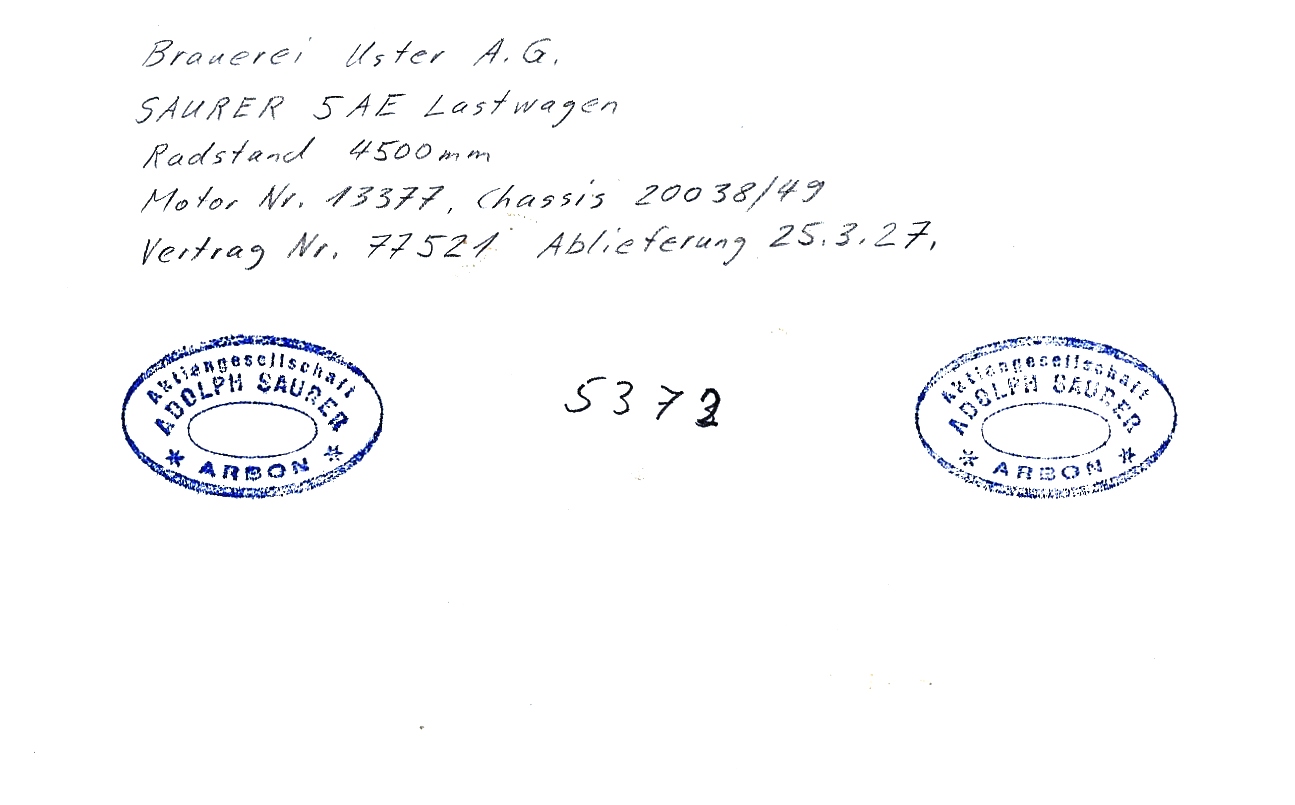 Brauerei Uster A.G.
SAURER 5AE Lastwagen
Radstand 4500mm
Motor Nr. 13377, Chassis 20038/49
Vertrag Nr. 77521 Ablieferung 25.3.27.
Aktiengesellschaft
ADOLPH SAURER
* ARBON *
Aktiengesellschaft
ADOLPH SAURER
* ARBON *